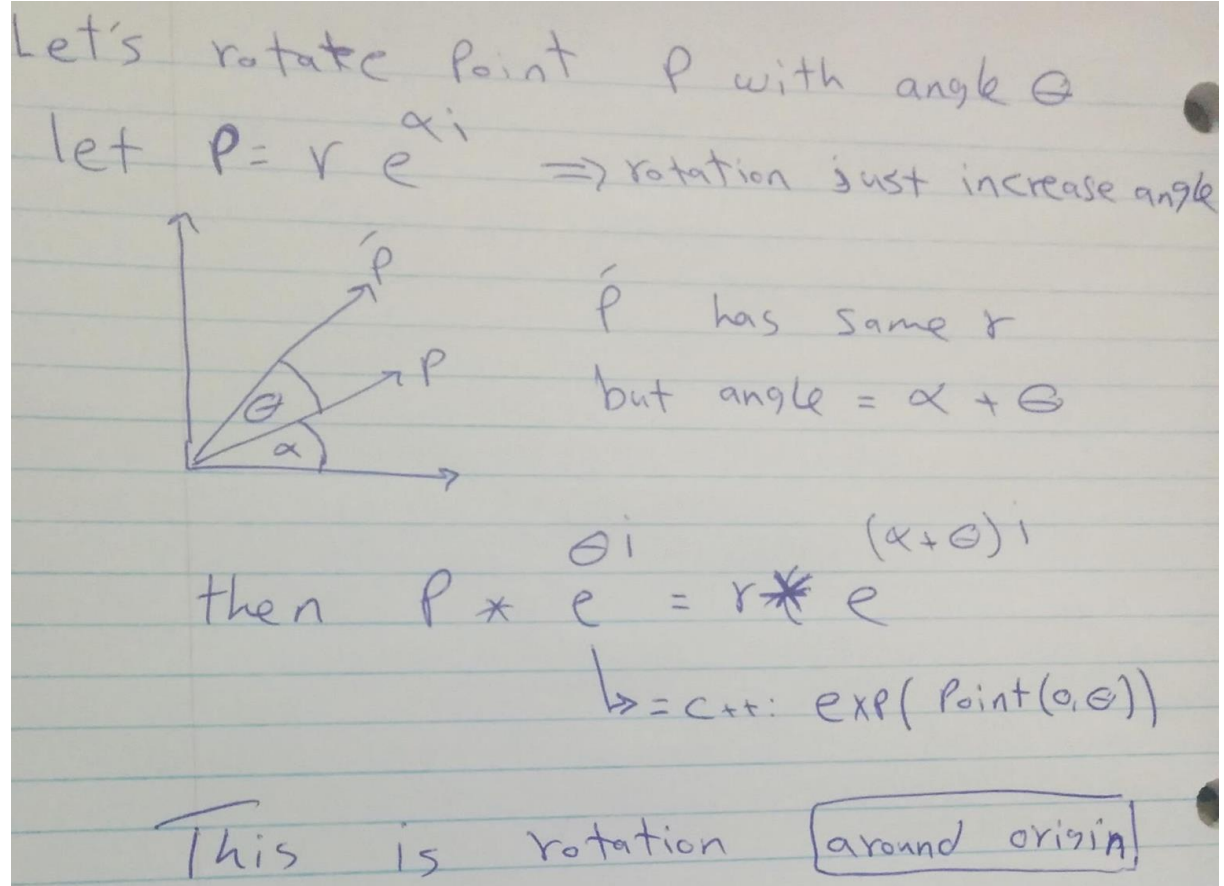 Let's rotate point P with angle θ
let P = r e^{αi} => rotation just increase angle
Ṕ
Ṕ has same r
P
θ
but angle = α + θ
α
then P * e^{θi} = r * e^{(α+θ)i}
↳ = C++: exp( Point(0,θ))
This is rotation around origin